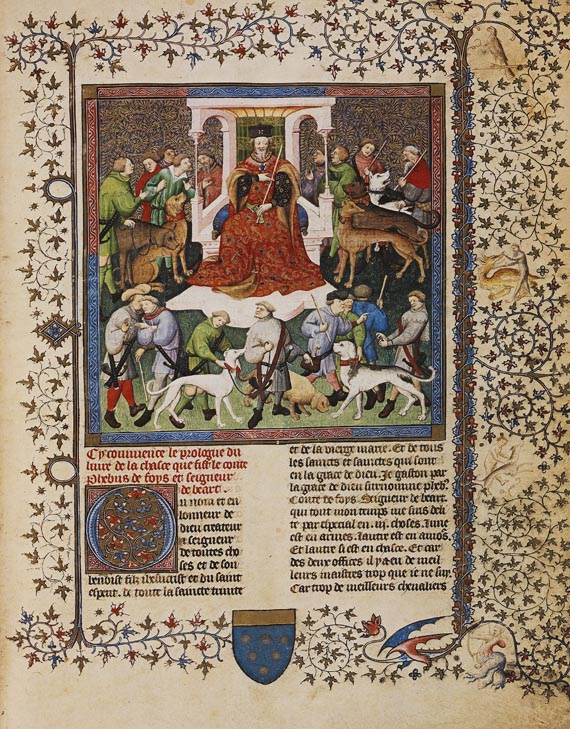 Cy commence le prologue du
liure de la chace que fist le conte
Phebus de foys et seigneur
de bearn.
En nom et en
lonneur de
dieu createur
et seigneur
de toutes cho
ses et de son
benoist filz ihesucrist et du saint
esperit. de toute la saincte trinite
et de la vierge marie. Et de tous
les saincts et sainctes qui sont
en la grace de dieu. Je gaston par
la grace de dieu surnomme pheb9.
Conte de foys. Seigneur de bearn.
qui tout mon temps me suis deli
te par especial en .iij. choses. lune
est en armes. lautre est en amours.
Et lautre si est en chace. Et car
des deux offices il ya eu de meil
leurs maistres trop que ie ne suy.
Car trop de meilleurs cheualiers